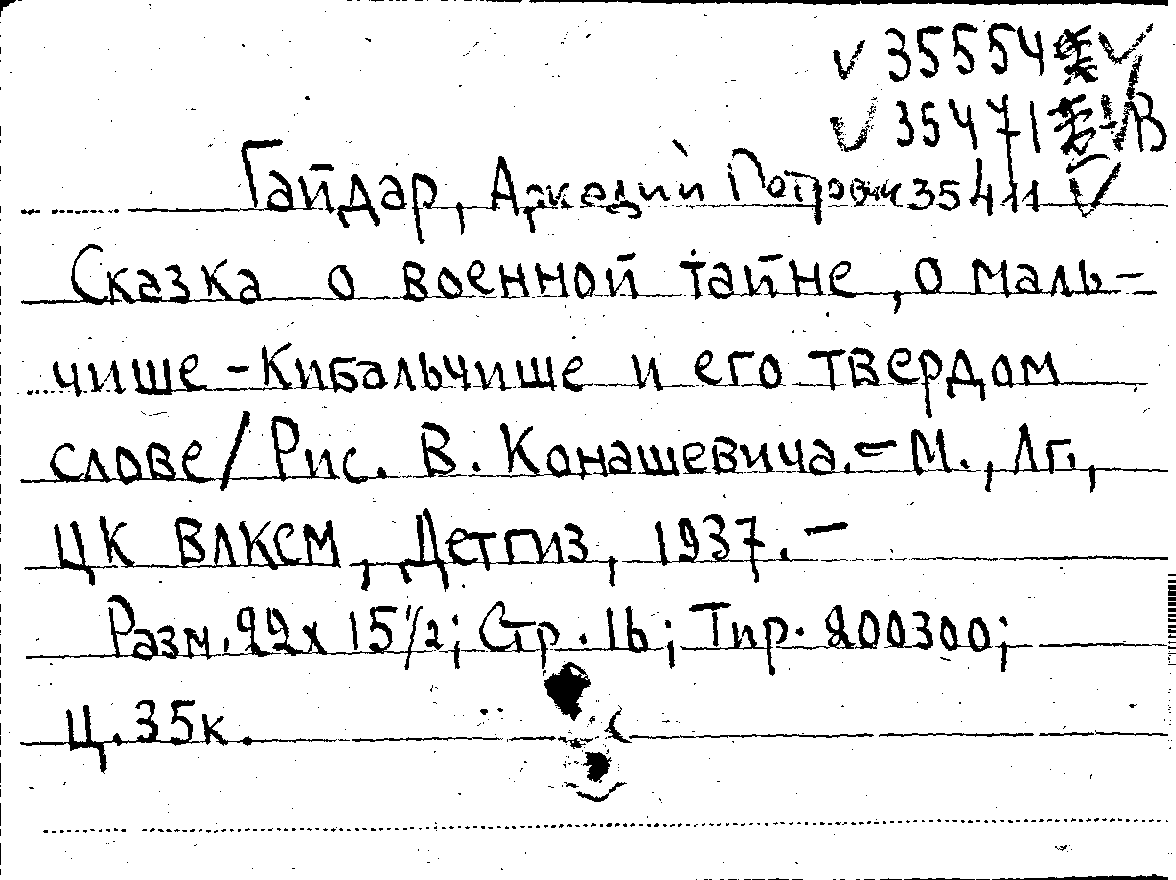 ✓ 35554 ✓
✓ 35471 - В
Гайдар, Аркадий Петрович 35411 ✓
Сказка о военной тайне, о маль-
чише-Кибальчише и его твердом
слове/Рис. В. Конашевича.-М., Лг.,
ЦК ВЛКСМ, Детгиз, 1937. -
Разм. 22х 15 1/2; Стр. 16; Тир. 200300;
Ц. 35к.